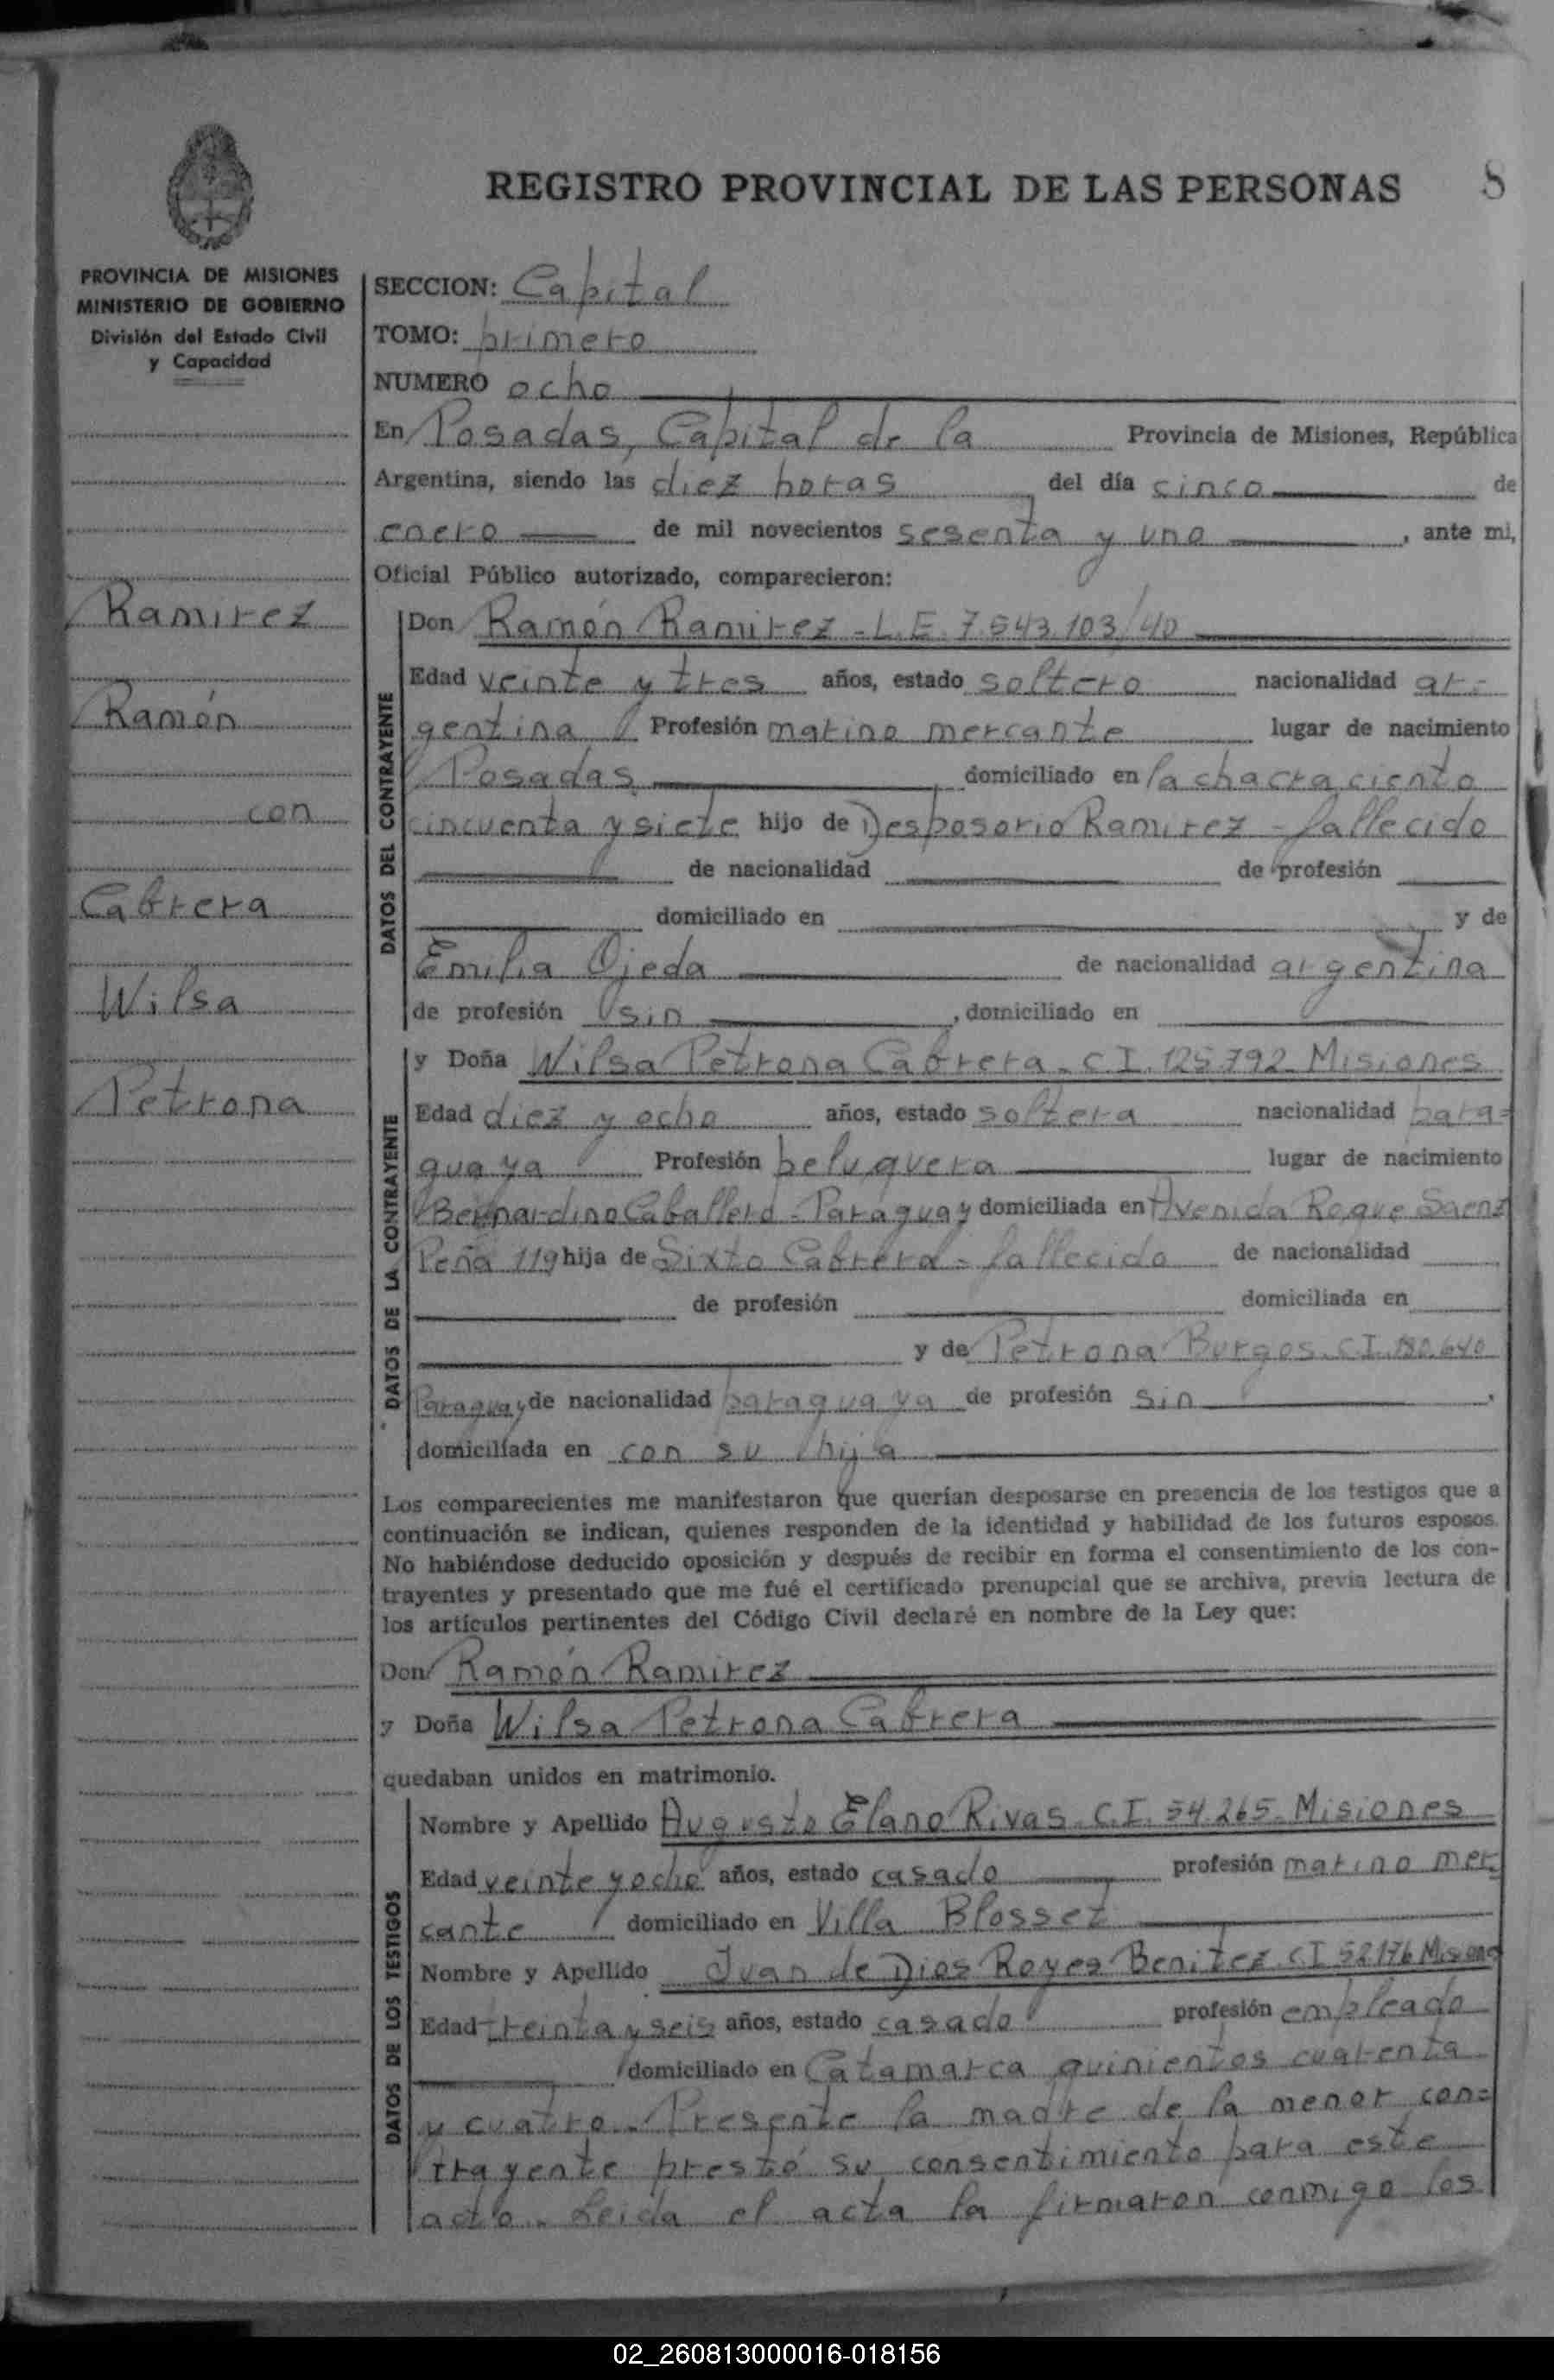 REGISTRO PROVINCIAL DE LAS PERSONAS 8
PROVINCIA DE MISIONES
MINISTERIO DE GOBIERNO
División del Estado Civil
y Capacidad
Ramirez
Ramón
con
Cabrera
Wilsa
Petrona
SECCION: Capital
TOMO: primero
NUMERO ocho
En Posadas, Capital de la Provincia de Misiones, República
Argentina, siendo las diez horas del día cinco de
enero de mil novecientos sesenta y uno, ante mi,
Oficial Público autorizado, comparecieron:
DATOS DEL CONTRAYENTE
Don Ramón Ramirez - L.E. 7.543.103/40
Edad veinte y tres años, estado soltero nacionalidad ar-
gentina Profesión marino mercante lugar de nacimiento
Posadas domiciliado en la chacra ciento
cincuenta y siete hijo de Desposorio Ramirez - fallecido
de nacionalidad de profesión
domiciliado en y de
Emilia Ojeda de nacionalidad argentina
de profesión sin, domiciliado en
DATOS DE LA CONTRAYENTE
y Doña Wilsa Petrona Cabrera - C.I. 125.792 - Misiones
Edad diez y ocho años, estado soltera nacionalidad para=
guaya Profesión peluquera lugar de nacimiento
Bernardino Caballero - Paraguay domiciliada en Avenida Roque Saenz
Peña 119 hija de Sixto Cabrera - fallecido de nacionalidad
de profesión domiciliada en
y de Petrona Burgos - C.I. 180.640
Paraguay de nacionalidad paraguaya de profesión sin,
domiciliada en con su hija
Los comparecientes me manifestaron que querían desposarse en presencia de los testigos que a
continuación se indican, quienes responden de la identidad y habilidad de los futuros esposos.
No habiéndose deducido oposición y después de recibir en forma el consentimiento de los con-
trayentes y presentado que me fué el certificado prenupcial que se archiva, previa lectura de
los artículos pertinentes del Código Civil declaré en nombre de la Ley que:
Don Ramón Ramirez
y Doña Wilsa Petrona Cabrera
quedaban unidos en matrimonio.
DATOS DE LOS TESTIGOS
Nombre y Apellido Augusto Elano Rivas - C.I. 54.265 - Misiones
Edad veinte y ocho años, estado casado profesión marino mer-
cante domiciliado en Villa Blosset
Nombre y Apellido Juan de Dios Reyes Benitez - C.I 52176 Misiones
Edad treinta y seis años, estado casado profesión empleado
domiciliado en Catamarca quinientos cuarenta
y cuatro - Presente la madre de la menor con=
trayente prestó su consentimiento para este
acto - Leida el acta la firmaron conmigo los
02_260813000016-018156